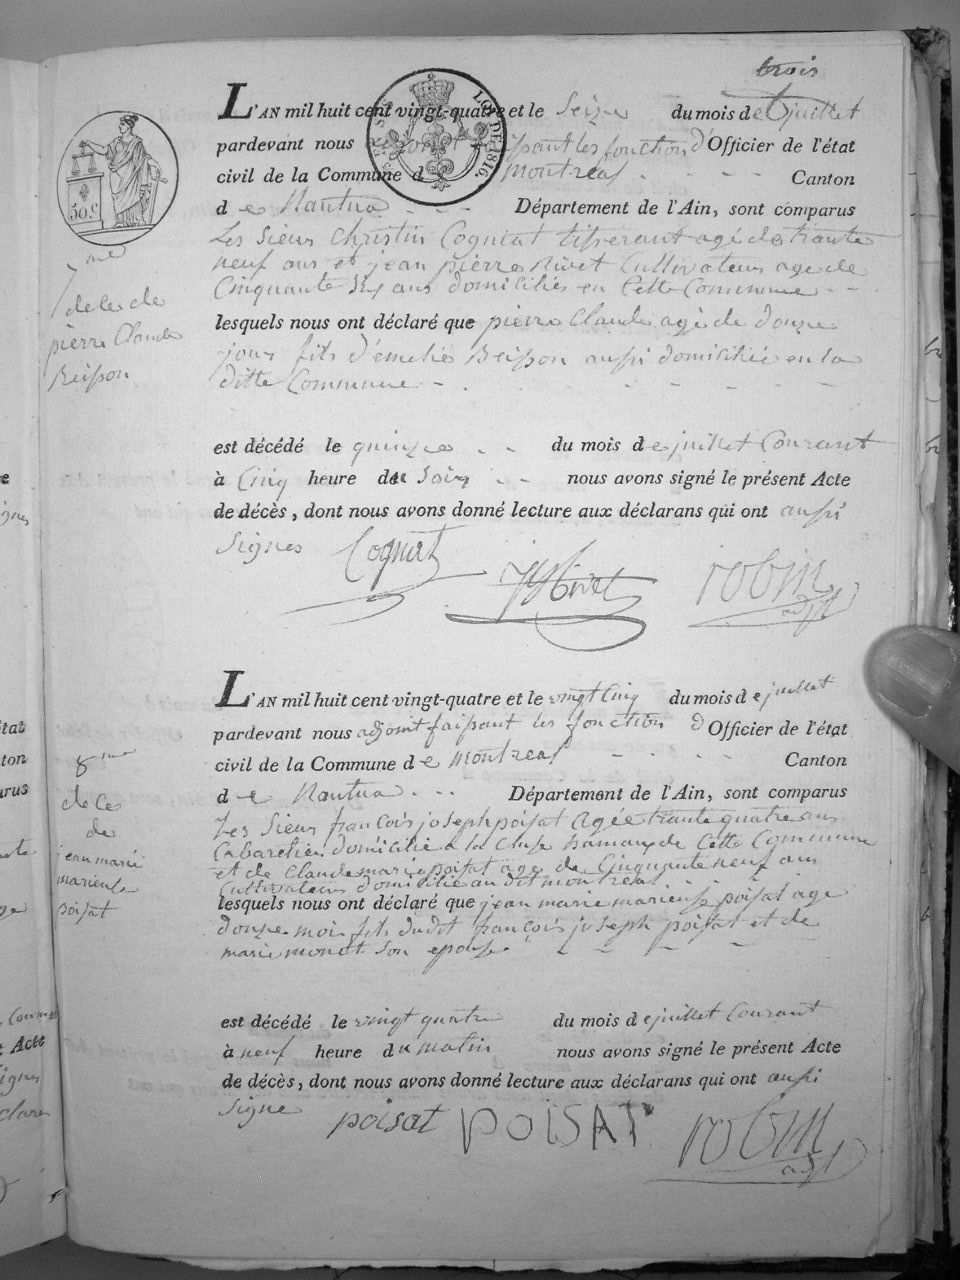 trois
L'AN mil huit cent vingt-quatre et le Seize du mois de juillet
pardevant nous adjoint faisant les fonction d'Officier de l'état
civil de la Commune de montreal Canton
de Nantua Département de l'Ain, sont comparus
Les Sieurs Christin Cogniat tisserant agé de trante
neuf ans et jean pierre Nivet Cultivateur age de
Cinquante six ans domiciliés en Cette Commune
lesquels nous ont déclaré que pierre Claude agé de douze
jour fils d'emelie Beisson aussi domiciliée en la
ditte Commune
est décédé le quinze du mois de juillet Courant
à Cinq heure du Soir nous avons signé le présent Acte
de décès, dont nous avons donné lecture aux déclarans qui ont aussi
Signes Cogniat Nivet robin adjt
7me
pierre Claude
Beisson
50 c.
LOI DE 1816.
L'AN mil huit cent vingt-quatre et le vingt Cinq du mois de juillet
pardevant nous adjoint faisant les fonction d'Officier de l'état
civil de la Commune de montreal Canton
de Nantua Département de l'Ain, sont comparus
Les Sieurs francois joseph poisat Agée trante quatre ans
Cabaretier domicilié a la Cluse hamau de Cette Commune
et de Claude marie poisat age de Cinquante neuf ans
Cultivateur domicilié au dit montreal
lesquels nous ont déclaré que jean marie mariense poisat age
d'onze moi fils du dit francois joseph poisat et de
marie monet son epouse
est décédé le vingt quatre du mois de juillet Courant
à neuf heure du matin nous avons signé le présent Acte
de décès, dont nous avons donné lecture aux déclarans qui ont aussi
Signe poisat POISAT robin adjt
8me
de ce
de
jean marie
mariense
poisat